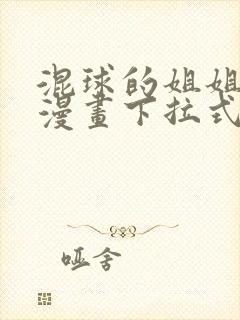 混球的姐姐
漫畫下拉式
哑舍